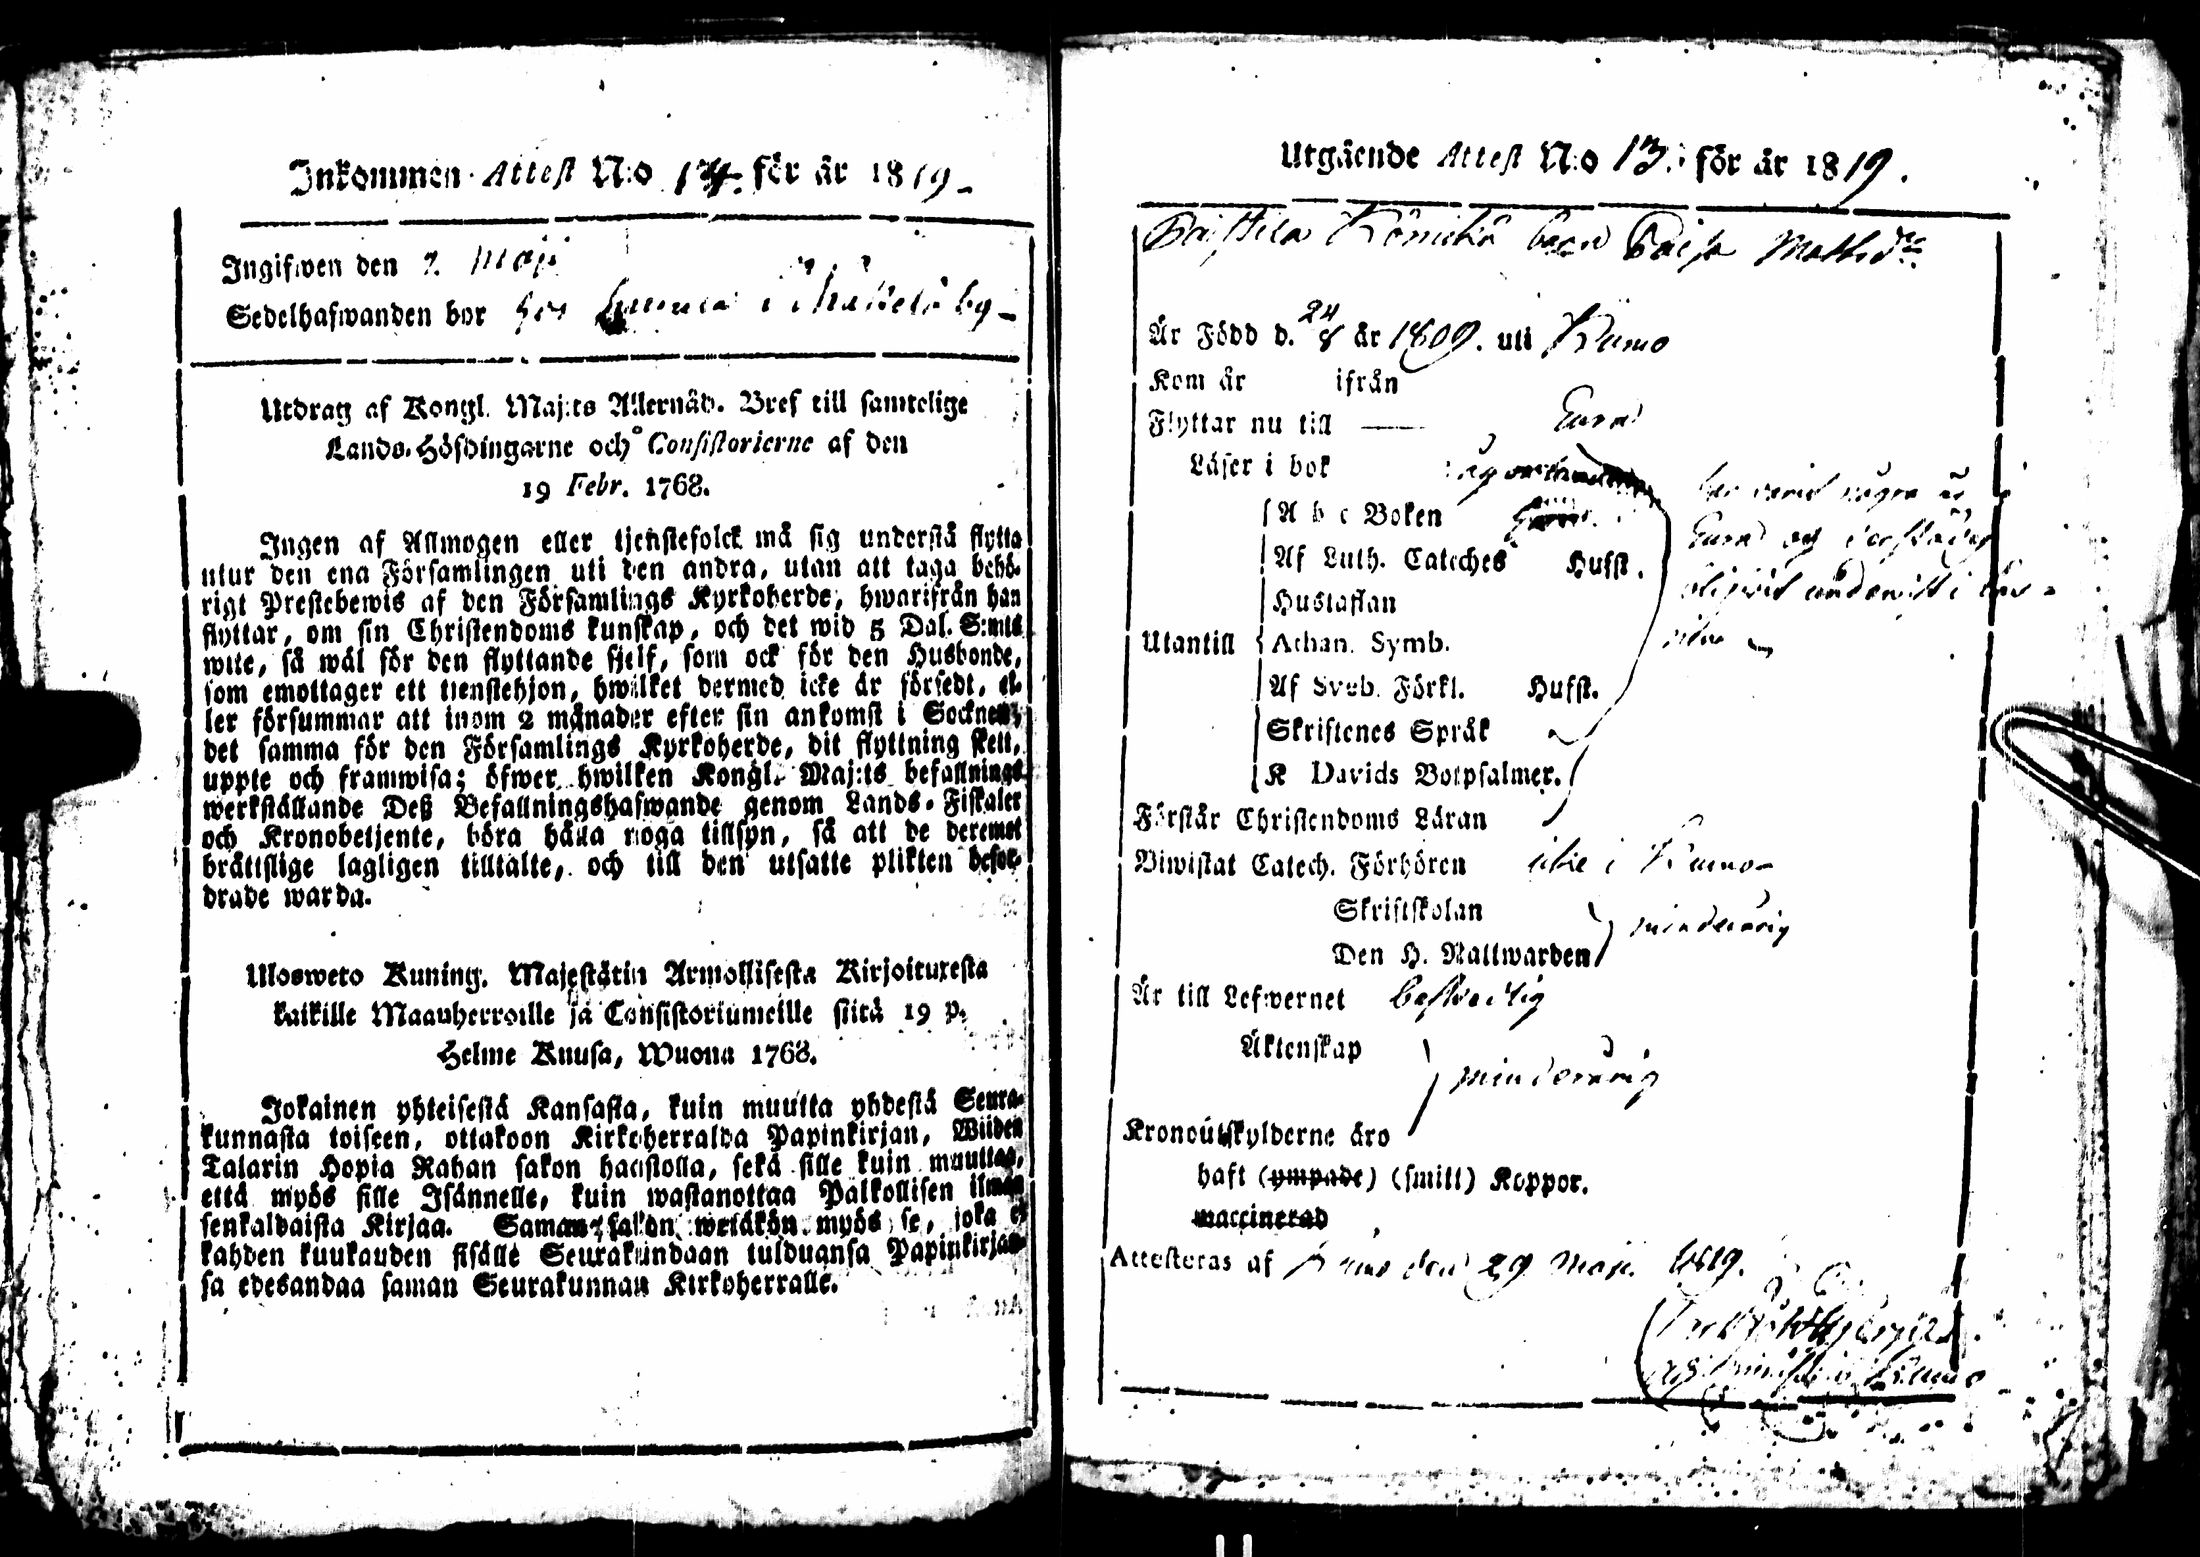 Inkommen Attest N:o 14. för år 1819
Ingifwen den 7. Maji
Sedelhafwanden bor hos i by
Utdrag af Kongl. Maj:ts Allernåd. Bref till samtelige
Lands-Höfdingarne och Consistorierne af den
19 Febr. 1768.
Ingen af Allmogen eller tjenstefolck må sig understå flytta
utur den ena Församlingen uti den andra, utan att taga behö-
rigt Prestebewis af den Församlings Kyrkoherde, hwarifrån han
flyttar, om sin Christendoms kunskap, och det wid 5 Dal. S:mts
wite, så wäl för den flyttande sjelf, som ock för den Husbonde,
som emottager ett tienstehjon, hwilket dermed icke är försedt, el-
ler försummar att inom 2 månader efter sin ankomst i Socknen,
det samma för den Församlings Kyrkoherde, dit flyttning skett,
uppte och framwisa; öfwer hwilken Kongl. Maj:ts befallnings
werkställande Deß Befallningshafwande genom Lands-Fiskaler
och Kronobetjente, böra hålla noga tillsyn, så att de deremot
bråttslige lagligen tilltalte, och till den utsatte plikten befor-
drade warda.
Ulosweto Kuning. Majestätin Armollisesta Kirjoituxesta
kaikille Maanherroille ja Consistoriumeille siitä 19 p.
Helme Kuusa, Wuonna 1768.
Jokainen yhteisestä Kansasta, kuin muutta yhdestä Seura-
kunnasta toiseen, ottakoon Kirkoherralda Papinkirjan, Wiiden
Talarin Hopia Rahan sakon haastolla, sekä sille kuin muuttaa,
että myös sille Isännelle, kuin wastanottaa Palkollisen ilman
senkaldaista Kirjaa. Saman sakon wetäkön myös se, joka ei
kahden kuukauden sisälle Seurakundaan tulduansa Papinkirjan-
sa edesandaa saman Seurakunnan Kirkoherralle.
Utgående Attest N:o 13. för år 1819.
barn Caisa Matsdr
Är Född d. 24/8 år 1809. uti Kumo
Kom år ifrån
Flyttar nu till — Eura
Läser i bok
har varit några år i
A b c Boken
Eura og derstädes
Af Luth. Catechès Hufst.
blifvit undervist i
Hustaflan
Utantill Athan. Symb.
Af Sveb. Förkl. Hufst.
Skriftenes Språk
K Davids Botpsalmer.
Förstår Christendoms Läran
Biwistat Catech. Förhören icke i Kumo
Skriftskolan
minderårig
Den H. Nattwarden
Är till Lefwernet beskedlig
Äktenskap
minderårig
Kronoutskylderne äro
haft (ympade) (smitt) Koppor.
waccinerad
Attesteras af Kumo den 29 Maji 1819.
i Kumo